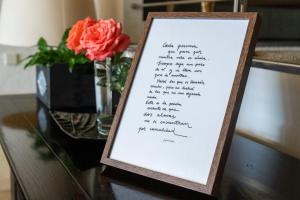 Cada persona
que pasa por
nuestra vida es única.
Siempre deja un poco
de sí y se lleva un
poco de nosotros.
Habrá los que se llevarán
mucho, pero no habrá
de los que no nos dejarán
nada.
Esta es la prueba
evidente de que
dos almas
no se encuentran
por casualidad.